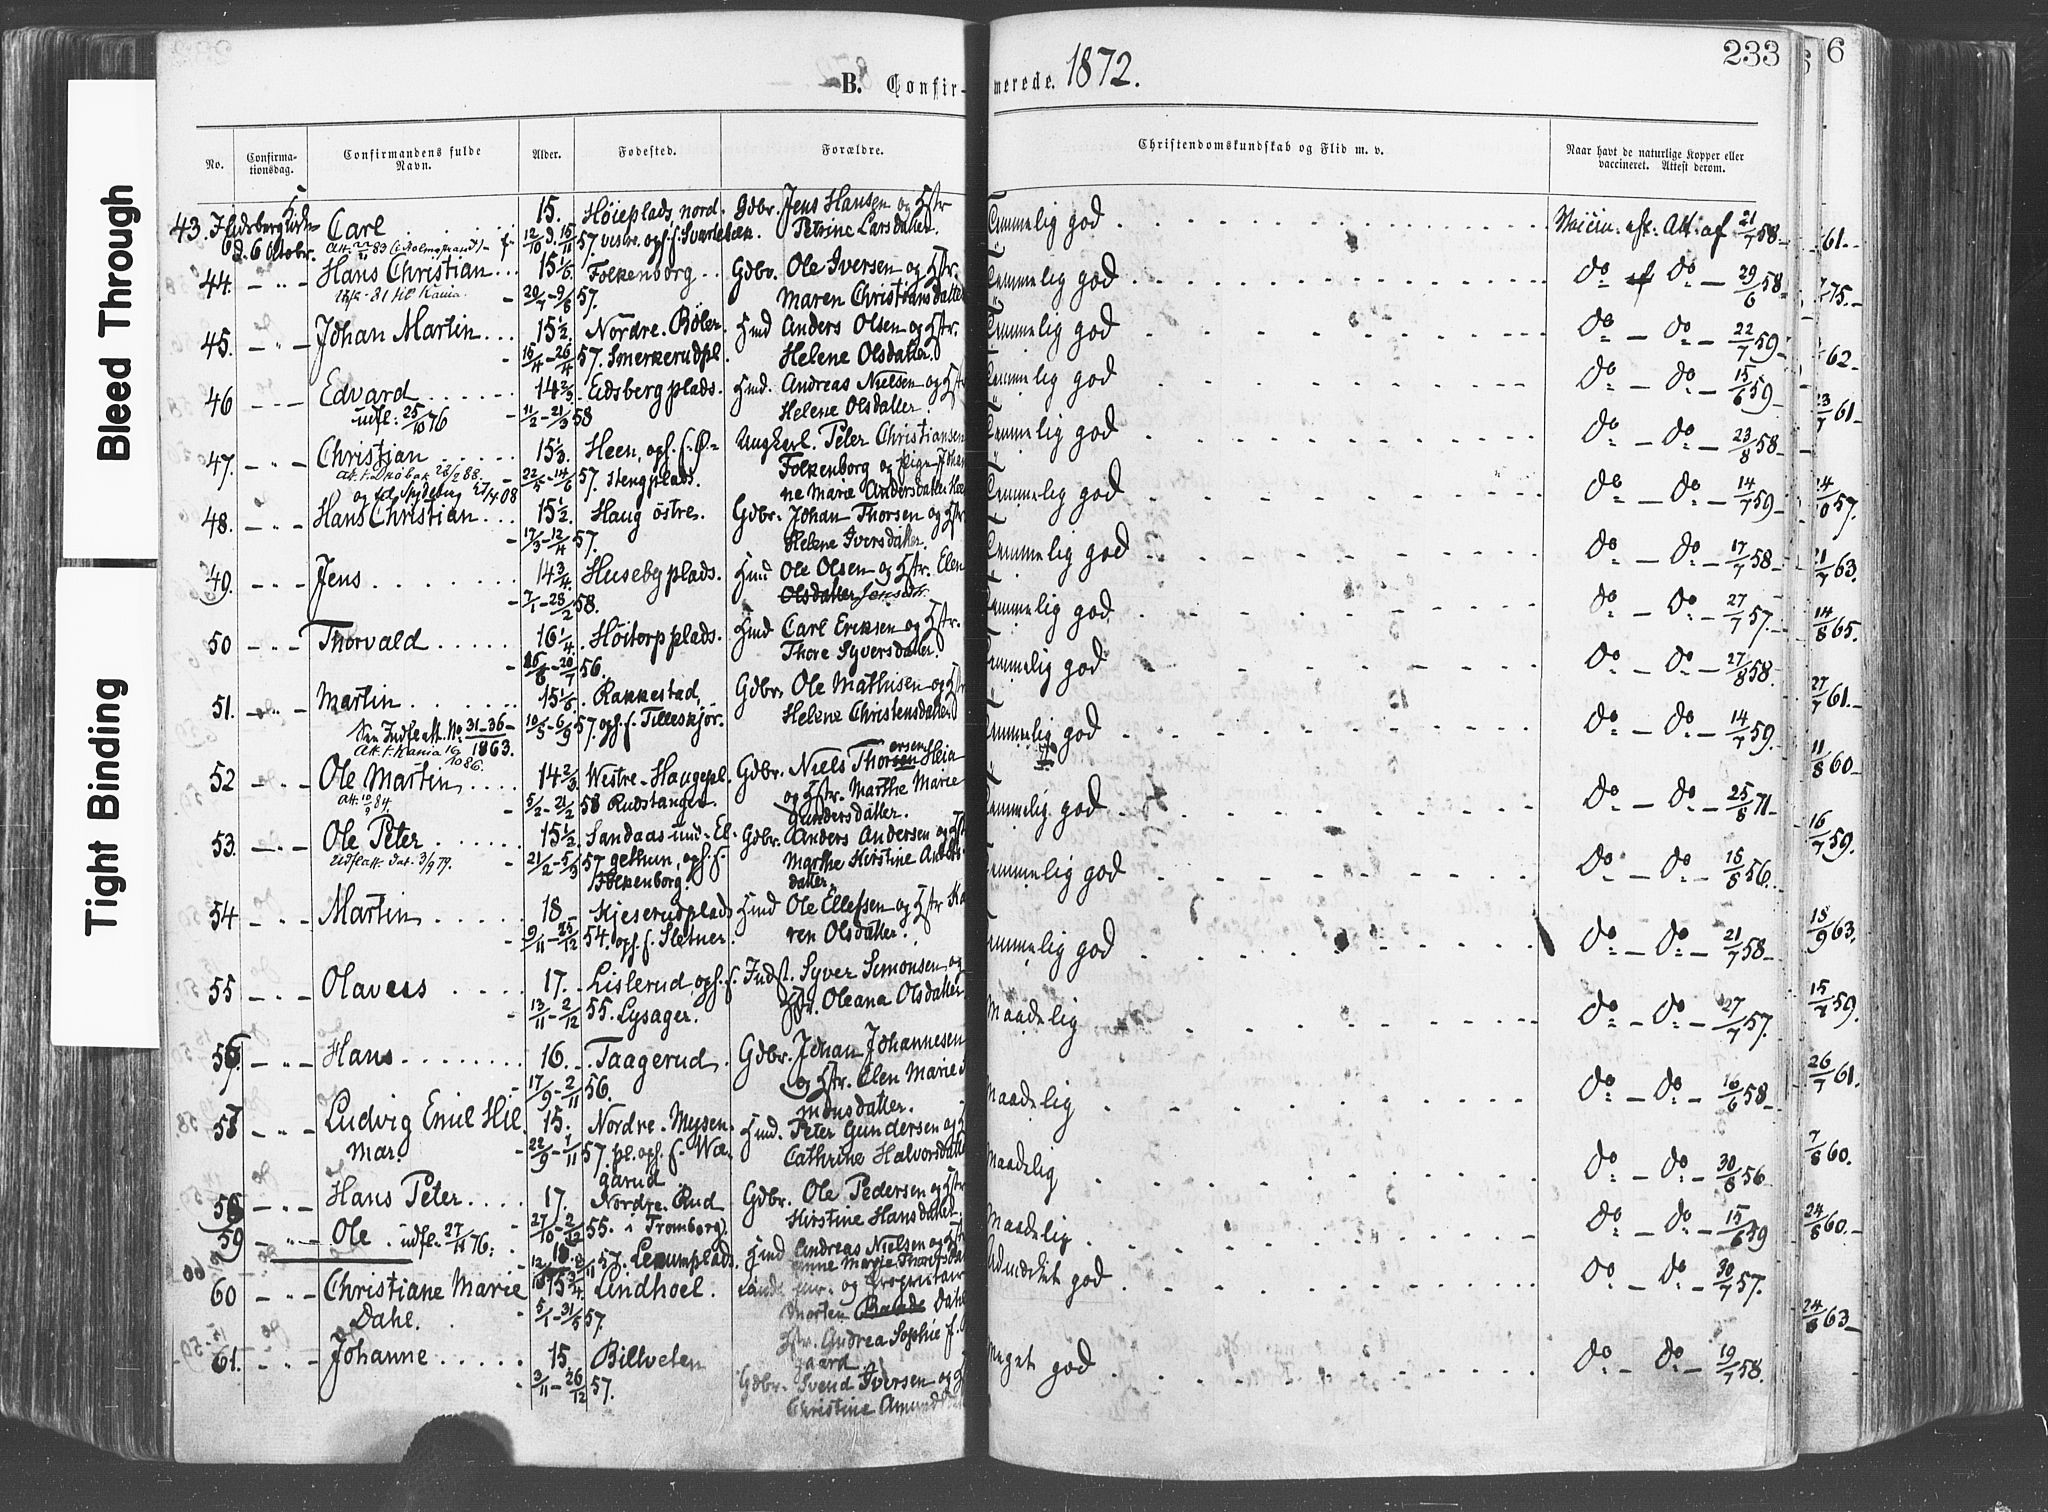 233
6
B. Confir-
merede. 1872.
Bleed Through
Tight Binding
No. Confirma-tionsdag. Confirmandens fulde Navn. Alder. Fødested. Forældre. Christendomskundskab og Flid m. v. Naar havt de naturlige Kopper eller vaccineret. Attest derom.
43. Carl 15. Høieplads nord. Gdbr. Jens Hansen og Hstr Temmelig god Att. af 21/7 58
d. 6 Octobr. 12/10 d. 15/11 57. vestre, ops. f. Svartebæk. Petrine Larsdatter.
44. Hans Christian 15 1/6 Folkenborg Gdbr. Ole Iversen og Hstr. Temmelig god do do 29/6 58
57. Maren Christiansdatter
45. Johan Martin 15 1/2. Nordre Bøler Hmd Anders Olsen og Hstr. Temmelig god do do 22/7 59
15/4 - 26/4 57. Smerkerudpl. Helene Olsdatter.
46 Edvard 14 2/3. Eidsberg plads. Hmd. Andreas Nielsen og Hstr Temmelig god do do 15/6 59
udfl. 25/10 76 11/2 - 21/3 58 Helene Olsdatter.
47. Christian 15 1/3. Heen, ops. f. Ø- Ungkarl. Peter Christiansen Temmelig god do do 23/8 58
22/5 - 14/6 57. stengplads. Folkenborg og Pige Johan
ne Marie Andersdatter
48. Hans Christian 15 1/2. Haug østre. Gdbr. Johan Thorsen og Hstr Temmelig god do do 14/7 59
17/3 - 12/4 57. Helene Iversdatter.
49. Jens 14 3/4. Huseby plads. Hmd Ole Olsen og Hstr. Elen Temmelig god do do 17/7 58
7/1 - 28/2 58. Olsdatter Jensdtr.
50 Thorvald 16 1/4. Høitorp plads. Hmd Carl Eriksen og Hstr. Temmelig god do do 27/7 57.
56. Thore Syversdatter.
51. Martin 15 1/6. Rakkestad, Gdbr. Ole Mathisen og Hstr Temmelig god do do 27/8 58.
Sen Indfl. att. No 31-36- 1863. 10/5 - 6/9 57. ops. f. Tilleskjør. Helene Christensdatter
52 Ole Martin 14 2/3. Westre Haugepl. Gdbr. Niels Thorersen Heia Temmelig god do do 14/7 59.
Att. 10/9 84 5/2 - 21/2 58 Rudstangen. og Hstr. Marthe Marie
Gundersdatter.
53. Ole Peter 15 1/2. Sandaas Gdbr. Anders Andersen og Hstr Temmelig god do do 25/8 71
Udfl. att. dat. 3/9 79. 21/2 - 5/3 57 ops. f. Marthe Kirstine Anders-
Folkenborg. datter.
54 Martin 18 Kjeserudplads Hmd Ole Ellefsen og Hstr Ka Temmelig god do do 18/8 56.
9/11 - 25/12 54. ops. f. Sletner. ren Olsdatter.
55 Olaves 17. Lislerud ops. f. Indst. Syver Simonsen og Temmelig god do do 21/7 58
13/11 - 2/12 55. Lysager. Hstr. Oleana Olsdatter
56 Hans 16. Taagerud Gdbr. Johan Johannesen Maadelig do do 27/7 57.
17/9 - 2/11 56. og Hstr. Elen Marie
57 Ludvig Emil Hil 15. Nordre Mysen Hmd. Peter Gundersen og Maadelig do do 16/6 58
mar. 22/9 - 1/11 57. pl. ops. f. Wæ- Cathrine Halvorsdatter
garud
58 Hans Peter 17. Nordre Rud Gdbr. Ole Pedersen og Hstr Maadelig do do 30/8 56
27/10 - 2/12 55. i Tromborg. Kirstine Hansdatter
59 Ole udfl. 27/11 76. 57. Hmd Andreas Nielsen og Hstr Maadelig do do 15/6 59
60 Christiane Marie 15 3/4 Lindhoel. og Proprietair Udmærket god do do 30/7 57.
Dahl. 5/1 - 31/5 57. Morten Dahl
Hstr. Andrea Sophie
gaard
61. Johanne 15 Billveten Gdbr. Svend Iversen og Meget god do do 19/7 58.
3/11 - 26/12 57. Christine Amundsdatter
61
75
62
23/7 61
14/10 57.
21/7 63.
14/8 65.
27/7 61
11/8 60
16/7 59.
18/9 63.
15/7 59.
26/7 61.
7/8 60.
24/8 60.
24/8 63